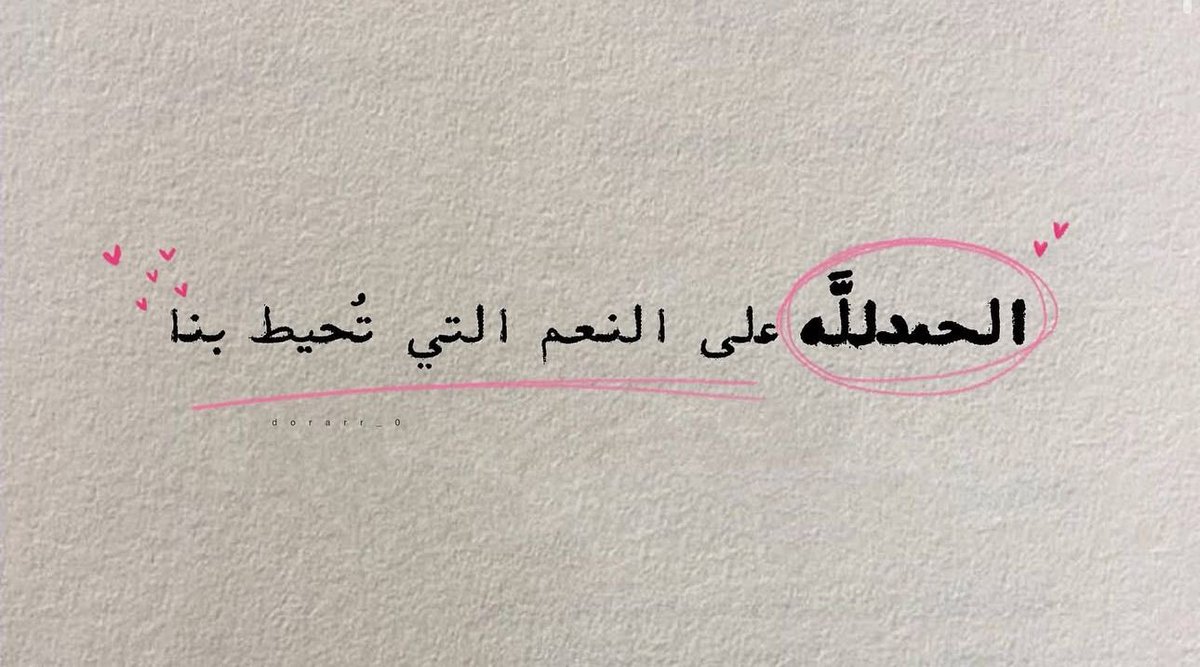 الحمدلله على النعم التي تُحيط بنا
dorarr_0